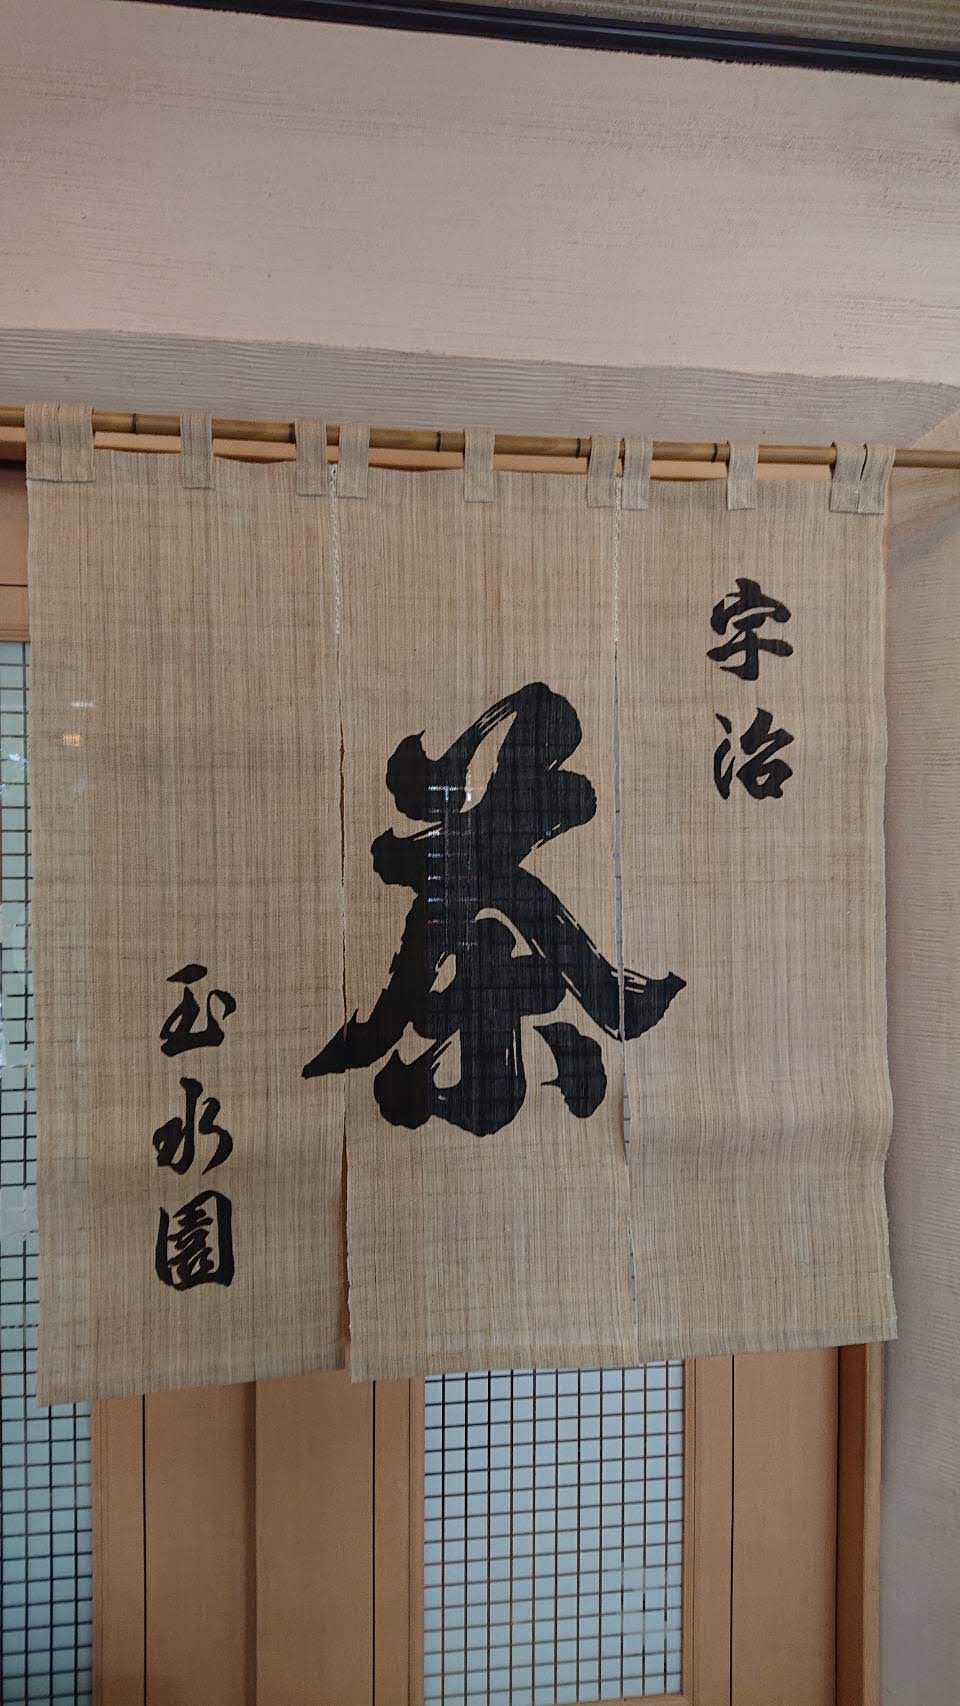 宇治
茶
玉水園